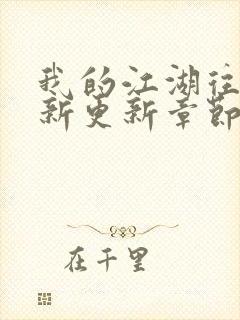 我的江湖往
新更新章節
在千里